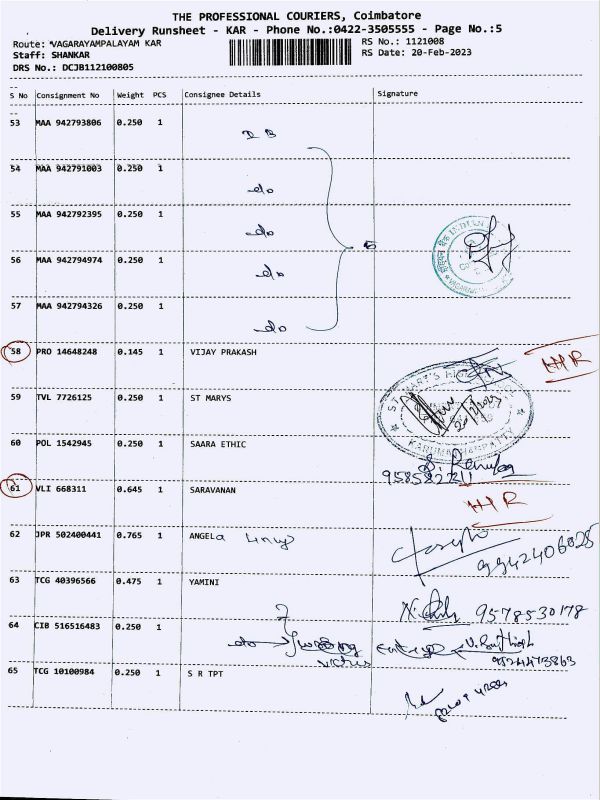 THE PROFESSIONAL COURIERS, Coimbatore
Delivery Runsheet - KAR - Phone No.:0422-3505555 - Page No.:5
Route: VAGARAYAMPALAYAM KAR
RS No.: 1121008
Staff: SHANKAR
RS Date: 20-Feb-2023
DRS No.: DCJB112100805
S No Consignment No Weight PCS Consignee Details Signature
53 MAA 942793806 0.250 1
54 MAA 942791003 0.250 1 do
55 MAA 942792395 0.250 1 do
56 MAA 942794974 0.250 1 do
57 MAA 942794326 0.250 1 do
58 PRO 14648248 0.145 1 VIJAY PRAKASH
59 TVL 7726125 0.250 1 ST MARYS
60 POL 1542945 0.250 1 SAARA ETHIC
61 VLI 668311 0.645 1 SARAVANAN
62 JPR 502400441 0.765 1 ANGELa
63 TCG 40396566 0.475 1 YAMINI 9578530178
64 CIB 516516483 0.250 1
65 TCG 10100984 0.250 1 S R TPT